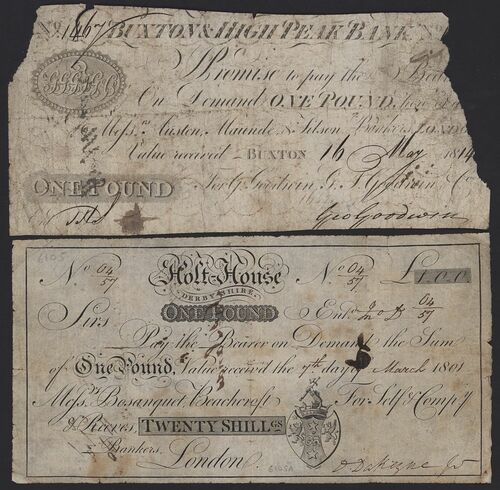 No. 1467 BUXTON & HIGH PEAK BANK No.
I Promise to pay the
On Demand ONE POUND, here or at
Messrs. Austen, Maunde & Tilson Bankers LONDON
Value received BUXTON 16 May 1814
ONE POUND For G. Goodwin, G. T. Goodwin & Co.
Geo Goodwin
6105
No. 04/57 Holt-House No. 04/57 £1,0,0
DERBYSHIRE
ONE POUND Entd. 04/57
Sirs
Pay the Bearer on Demand the Sum
of One Pound, Value received the 7th day of March 1801
Messrs. Bosanquet, Beachcroft For Self & Compy.
& Reeves, TWENTY SHILLGS.
Bankers,
London.
6105A